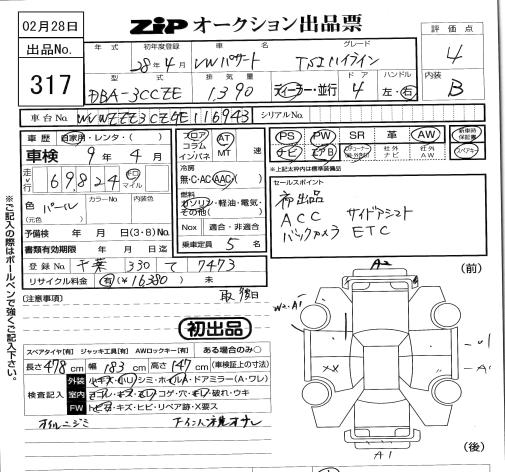 02月28日
ZIP オークション出品票
出品No.
317
年式 初年度登録 車名 グレード
28年4月 VWパサート TSIハイライン
評価点
4
型式 排気量 ドア ハンドル
DBA-3CCZE 1,390 ディーラー・並行 4 左・右
内装
B
車台No. WVWZZZ3CZGE116943 シリアルNo.
車歴 自家用・レンタ・( )
車検 9年4月
走行 69,824 キロ マイル
色(元色) パール カラーNo. 内装色
予備検 年 月 日(3・8)No.
書類有効期限 年 月 日迄
登録No. 千葉 330 て 7473
リサイクル料金 有(¥16,380) 未
フロア コラム インパネ AT MT 速
冷房
無・C・AC・AAC
燃料
ガソリン・軽油・電気・その他( )
Nox 適合・非適合
乗車定員 5名
PS PW SR 革 AW 新車時保証書
ナビ エアB 社外ナビ 社外AW スペアキー
※上記太枠内は標準装備品
セールスポイント
初出品
ACC サイドアシスト
バックカメラ ETC
(注意事項)
取、後日
初出品
スペアタイヤ[有] ジャッキ工具[有] AWロックキー[有] ある場合のみ○
長さ 478 cm 幅 183 cm 高さ 147 cm (車検証上の寸法)
検査記入
外装
室内
FW
オイルニジミ
A2
(前)
W2・A1
XX
U1
A1
A1
(後)
※ご記入の際はボールペンで強くご記入下さい。